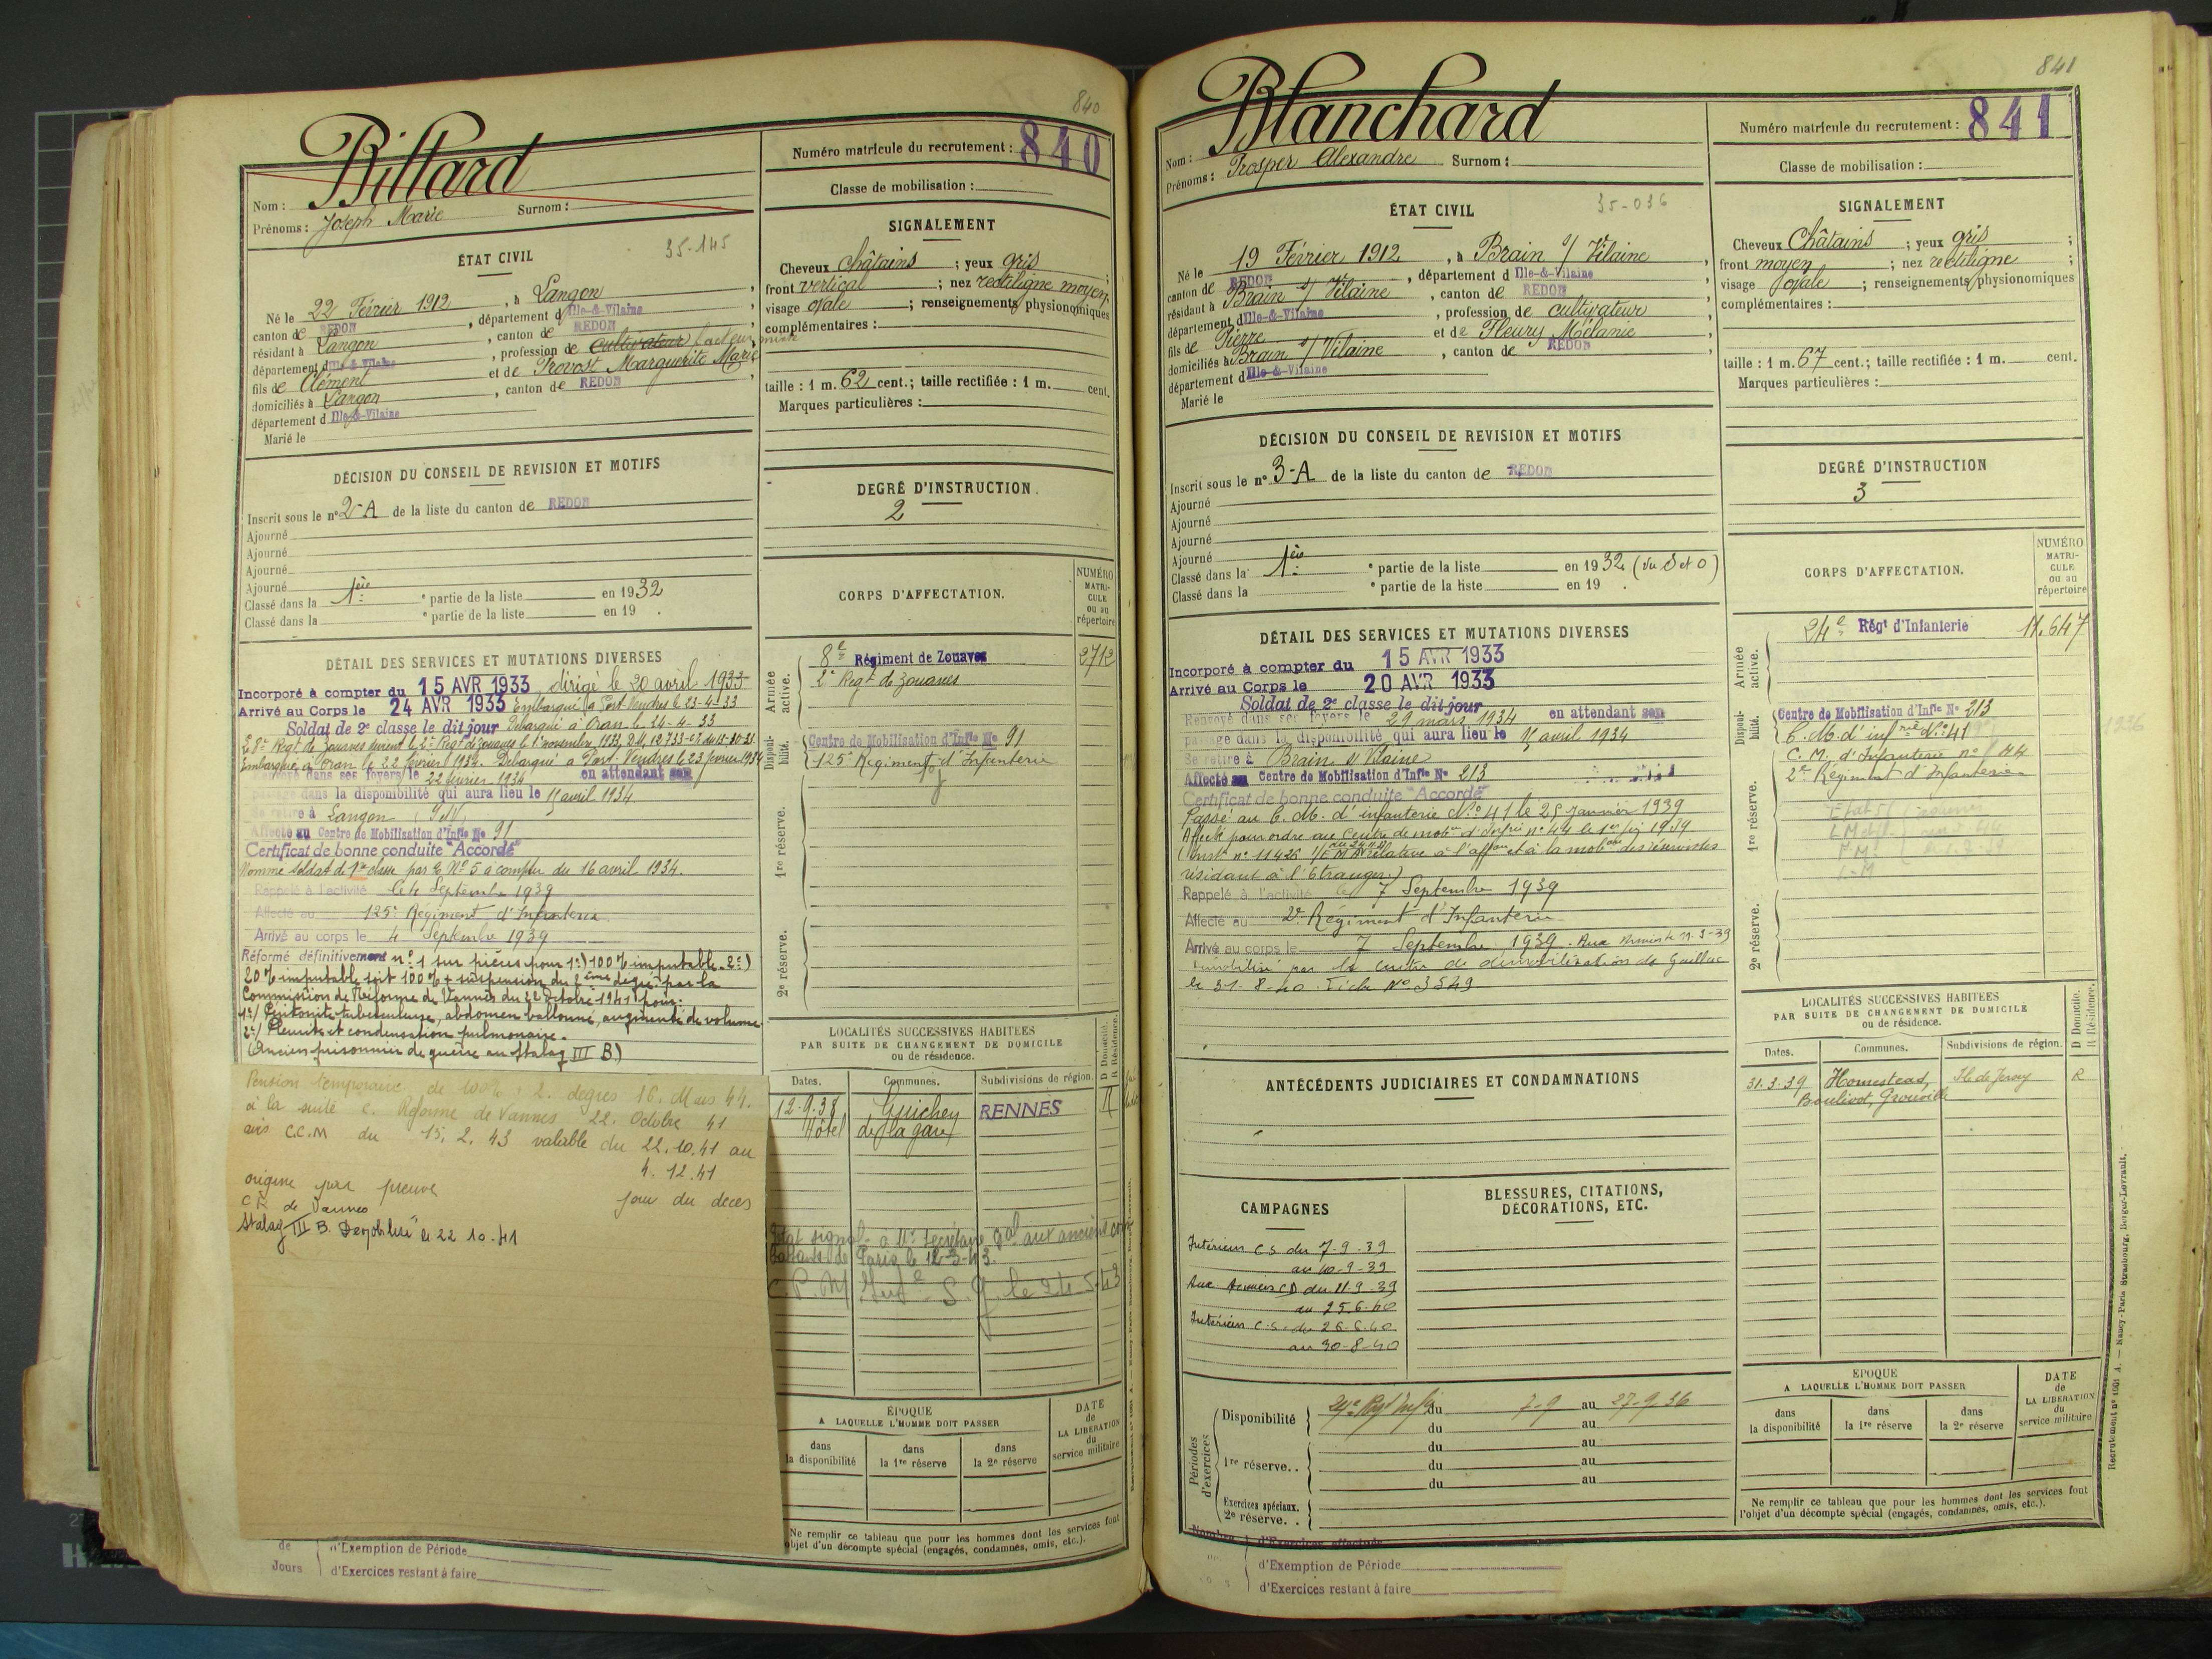 840
Billard
Nom :
Prénoms : Joseph Marie Surnom :
Numéro matricule du recrutement : 840
Classe de mobilisation :
ÉTAT CIVIL
35-145
Né le 22 Février 1912, à Langon,
canton de REDON, département d Ille-&-Vilaine
résidant à Langon, canton de REDON
département d Ille-&-Vilaine, profession de cultivateur facteur mixte
fils de Clément et de Provost Marguerite Marie
domiciliés à Langon, canton de REDON,
département d Ille-&-Vilaine
Marié le
SIGNALEMENT
Cheveux châtains ; yeux gris ;
front vertical ; nez rectiligne moyen,
visage ovale ; renseignements physionomiques
complémentaires :
taille : 1 m. 62 cent.; taille rectifiée : 1 m. cent.
Marques particulières :
DÉCISION DU CONSEIL DE REVISION ET MOTIFS
Inscrit sous le nº 2-A de la liste du canton de REDON
Ajourné
Ajourné
Ajourné
Ajourné
Classé dans la 1ère partie de la liste en 1932
Classé dans la e partie de la liste en 19 .
DEGRÉ D'INSTRUCTION.
2
DÉTAIL DES SERVICES ET MUTATIONS DIVERSES
Incorporé à compter du 15 AVR 1933, dirigé le 20 avril 1933
Arrivé au Corps le 24 AVR 1933 Embarqué à Port-Vendres le 23-4-33
Soldat de 2e classe le dit jour Débarqué à Oran le 24-4-33
Le 8e Regt de Zouaves devient le 2e Regt de Zouaves le 1er novembre 1933,
Embarqué à Oran le 22 février 1934. Débarqué à Port-Vendres le 23 février 1934
Renvoyé dans ses foyers le 22 février 1934 en attendant son
passage dans la disponibilité qui aura lieu le 15 avril 1934
Se retire à Langon
Affecté au Centre de Mobilisation d'Infie Nº 91
Certificat de bonne conduite "Accordé"
Nommé soldat de 1re classe par Nº 5 à compter du 16 avril 1934.
Rappelé à l'activité le 4 Septembre 1939
Affecté au 125e Régiment d'Infanterie
Arrivé au corps le 4 Septembre 1939
Réformé définitivement nº 1 sur pièces pour 1º) 100% imputable. 2º)
20% imputable soit 100% + suspension du 2ème degré par la
Commission de Réforme de Vannes du 22 Octobre 1941 pour:
1º/ Péritonite tuberculeuse, abdomen ballonné, augmenté de volume
2º/ Pleurite et condensation pulmonaire.
(Ancien prisonnier de guerre au Stalag III B.)
Pension temporaire de 100% + 2. degrés 16. Mars 44.
à la suite C. Réforme de Vannes 22. Octobre 41
avis C.C.M du 15. 2. 43 valable du 22.10.41 au
4. 12. 41
origine par preuve jour du décès
CR de Vannes
Stalag III B. Démobilisé le 22.10.41
CORPS D'AFFECTATION.
NUMÉRO MATRICULE ou au répertoire
Armée active.
8e Régiment de Zouaves 2712
2e Regt de Zouaves
Disponibilité.
Centre de Mobilisation d'Infie Nº 91
125e Régiment d'Infanterie
1re réserve.
2e réserve.
LOCALITÉS SUCCESSIVES HABITEES
PAR SUITE DE CHANGEMENT DE DOMICILE
ou de résidence.
D Domicile.
R Résidence.
Dates. Communes. Subdivisions de région.
12-9-38 Guichen RENNES R
Hôtel de la gare
Etat signal. à Mr Secrétaire Gal aux anciens com
battants de Paris le 12-3-43.
ÉPOQUE
A LAQUELLE L'HOMME DOIT PASSER
dans la disponibilité
dans la 1re réserve
dans la 2e réserve
DATE de LA LIBÉRATION du service militaire
Ne remplir ce tableau que pour les hommes dont les services font
l'objet d'un décompte spécial (engagés, condamnés, omis, etc.).
de d'Exemption de Période
Jours d'Exercices restant à faire
841
Blanchard
Nom :
Prénoms : Prosper Alexandre Surnom :
Numéro matricule du recrutement : 841
Classe de mobilisation :
ÉTAT CIVIL
35-036
Né le 19 Février 1912, à Brain s/ Vilaine,
canton de REDON, département d Ille-&-Vilaine
résidant à Brain s/ Vilaine, canton de REDON
département d Ille-&-Vilaine, profession de cultivateur
fils de Pierre et de Fleury Mélanie
domiciliés à Brain s/ Vilaine, canton de REDON,
département d Ille-&-Vilaine
Marié le
SIGNALEMENT
Cheveux Châtains ; yeux gris ;
front moyen ; nez rectiligne ;
visage ovale ; renseignements physionomiques
complémentaires :
taille : 1 m. 67 cent.; taille rectifiée : 1 m. cent.
Marques particulières :
DÉCISION DU CONSEIL DE REVISION ET MOTIFS
Inscrit sous le nº 3-A de la liste du canton de REDON
Ajourné
Ajourné
Ajourné
Ajourné
Classé dans la 1ère partie de la liste en 1932 (du S et O)
Classé dans la e partie de la liste en 19 .
DEGRÉ D'INSTRUCTION
3
DÉTAIL DES SERVICES ET MUTATIONS DIVERSES
Incorporé à compter du 15 AVR 1933
Arrivé au Corps le 20 AVR 1933
Soldat de 2e classe le dit jour
Renvoyé dans ses foyers le 29 mars 1934 en attendant son
passage dans la disponibilité qui aura lieu le 15 avril 1934
Se retire à Brain s/ Vilaine
Affecté au Centre de Mobilisation d'Infie Nº 213
Certificat de bonne conduite "Accordé"
Passé au C. M. d'infanterie Nº 41 le 25 Janvier 1939
Affecté pour ordre au Centre de mobon d'Infrie nº 44 le 1er 1939
(Inst. nº 11426 1/E M A relative à l'affon et à la mobon des réservistes
résidant à l'Etranger)
Rappelé à l'activité le 7 Septembre 1939
Affecté au 2e Régiment d'Infanterie
Arrivé au corps le 7 Septembre 1939. Aux Armées le 11-9-39
Démobilisé par le centre de démobilisation de Gaillac
le 31-8-40. Fiche Nº 3549
ANTÉCÉDENTS JUDICIAIRES ET CONDAMNATIONS
CAMPAGNES
Intérieur C S du 7-9-39
au 10-9-39
Aux Armées CD du 11.9.39
au 25.6.40
Intérieur C.S. du 26.6.40
au 30-8-40
BLESSURES, CITATIONS,
DÉCORATIONS, ETC.
Périodes d'exercices
Disponibilité 24e Regt Infie du 7-9 au 27-9-36
du au
1re réserve.. du au
du au
du au
Exercices spéciaux.
2e réserve. .
d'Exercices effectués
d'Exemption de Période
d'Exercices restant à faire
CORPS D'AFFECTATION.
NUMÉRO MATRICULE ou au répertoire
Armée active.
24e Régt d'Infanterie 11.647
Disponibilité.
Centre de Mobilisation d'Infie Nº 213
C. M. d'infrie Nº 41
C. M. d'Infanterie nº 44
2e Régiment d'Infanterie
1re réserve.
2e réserve.
LOCALITÉS SUCCESSIVES HABITÉES
PAR SUITE DE CHANGEMENT DE DOMICILE
ou de résidence.
D Domicile.
R Résidence.
Dates. Communes. Subdivisions de région.
31.3.39 Homestead, Ile de Jersey R
Boulivot, Grouville
ÉPOQUE
A LAQUELLE L'HOMME DOIT PASSER
dans la disponibilité
dans la 1re réserve
dans la 2e réserve
DATE de LA LIBÉRATION du service militaire
Ne remplir ce tableau que pour les hommes dont les services font
l'objet d'un décompte spécial (engagés, condamnés, omis, etc.).
Recrutement nº 1001 A. — Nancy-Paris-Strasbourg, Berger-Levrault.